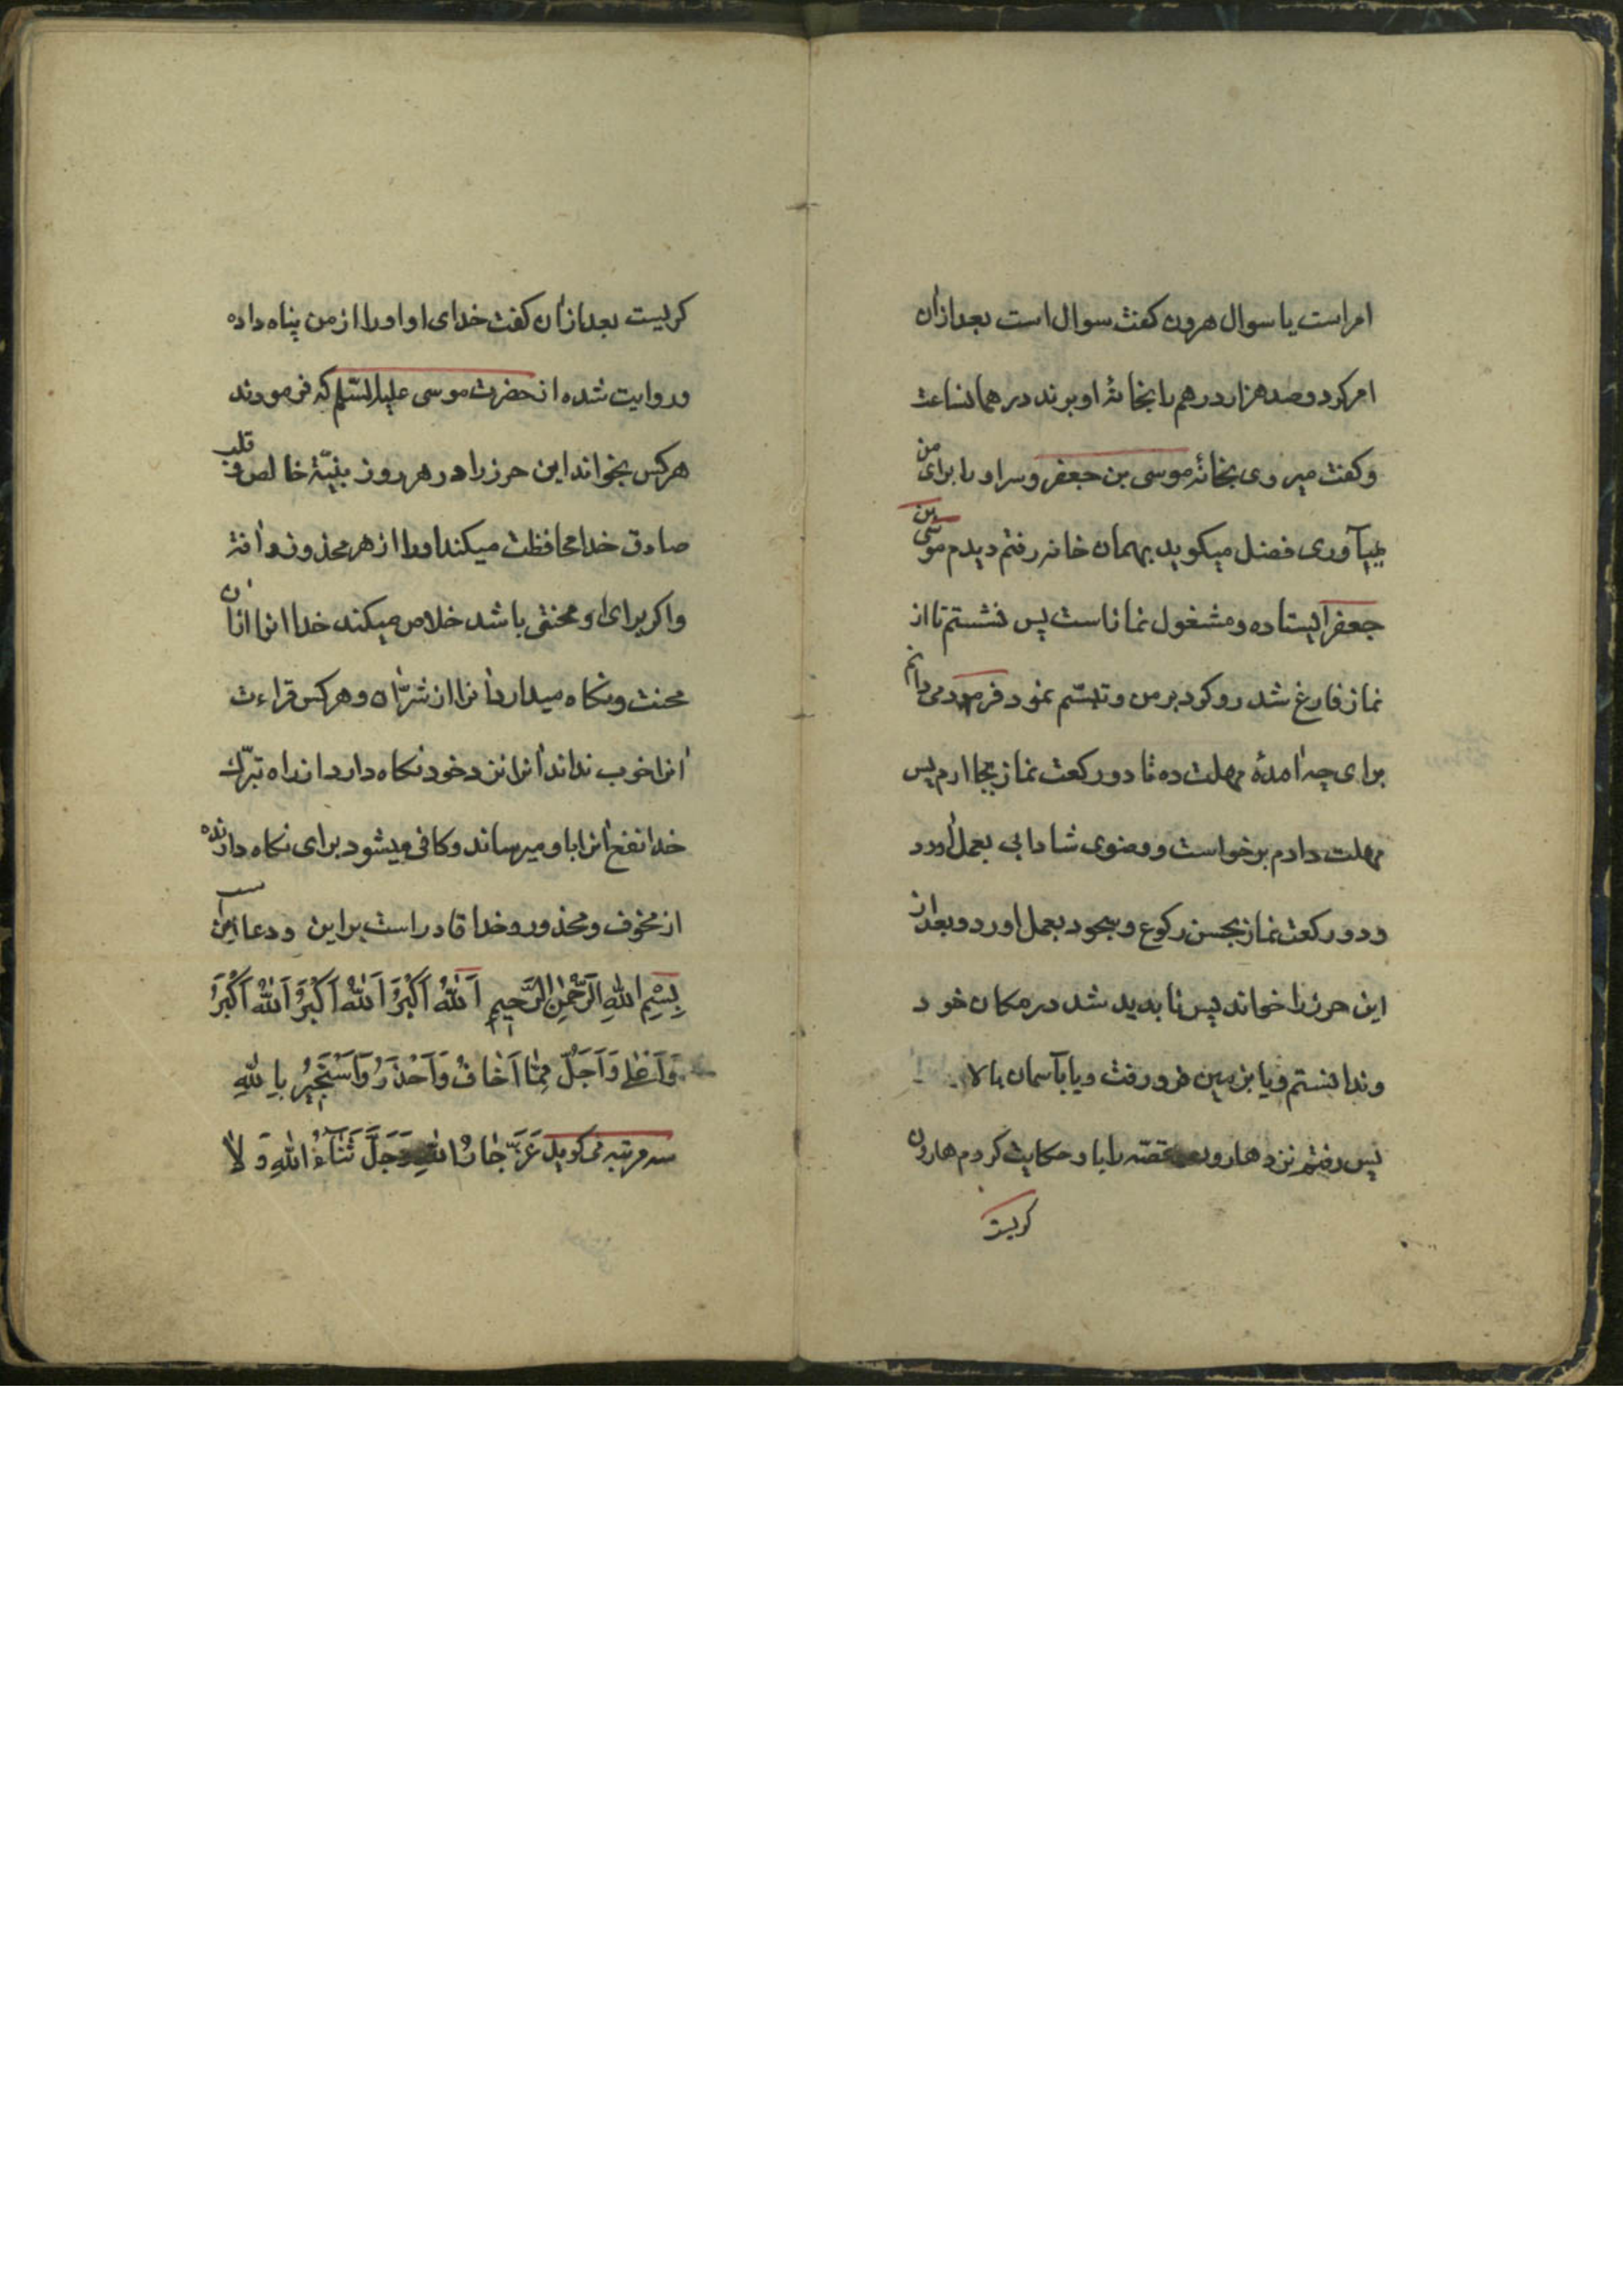 امر است یا سوال هرون کفت سوال است بعد ازان
امر کرد و صد هزار درهم را بخانهٔ او برند در همانساعت
و کفت میروی بخانهٔ موسی بن جعفر و سر او را برای من
میآوری فضل میکوید بهمان خانه رفتم دیدم موسی بن
جعفر ایستاده و مشغول نماز است پس نشستم تا از
نماز فارغ شد رو کرد بر من و تبسّم نمود فرمود می دانم
برای چه آمدهٔ مهلت ده تا دو رکعت نماز بجا ارم پس
مهلت دادم برخواست و وضوی شادابی بعمل آورد
و دو رکعت نماز بحسن رکوع و سجود بعمل اورد و بعد از
این حرز را خواند پس نا پدید شد در مکان خود
و ندانستم و یا بزمین فرو رفت و یا بآسمان بالا
پس رفتم نزد هارون قصّه را باو حکایت کردم هارون
کریست
کریست بعد ازان کفت خدای او او را از من پناه داده
و روایت شده از حضرت موسی علیه السّلم که فرمودند
هر کس بخواند این حرز را در هر روز بنیّة خالص و قلب
صادق خدا محافظت میکند او را از هر محذور و آفة
و اکر برای او محنتی باشد خلاص میکند خدا انرا ازان
محنت و نکاه میدارد انرا از شرّ ان و هر کس قراءت
انرا خوب نداند انرا نزد خود نکاه دارد از راه تبرّك
خدا نفع انرا باو میرساند و کافی میشود برای نکاه دارنده
از مخوف و محذور و خدا قادر است بر این و دعا این است
بِسْمِ اللهِ الرَّحْمٰنِ الرَّحیمِ اَللهُ اَکْبَرُ اَللهُ اَکْبَرُ اَللهُ اَکْبَرُ
وَ اَعْلٰی وَ اَجَلُّ مِمّٰا اَخٰافُ وَ اَحْذَرُ وَ اَسْتَجیرُ بِاللهِ
سه مرتبه می کوید عَزَّ جٰارُ اللهِ وَ جَلَّ ثَنٰاءُ اللهِ وَ لاٰ